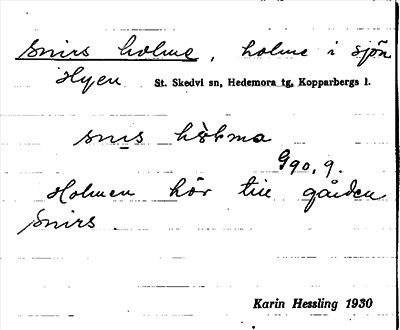 Snirs holme, holme i sjön
Hyen St. Skedvi sn, Hedemora tg, Kopparbergs l.
G90, 9.
Holmen hör till gården
Snirs.
Karin Hessling 1930